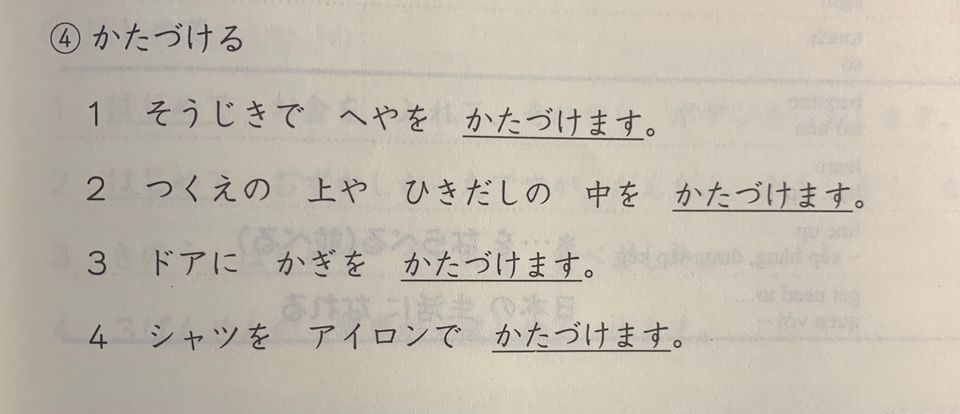 ④ かたづける
1 そうじきで へやを かたづけます。
2 つくえの 上や ひきだしの 中を かたづけます。
3 ドアに かぎを かたづけます。
4 シャツを アイロンで かたづけます。